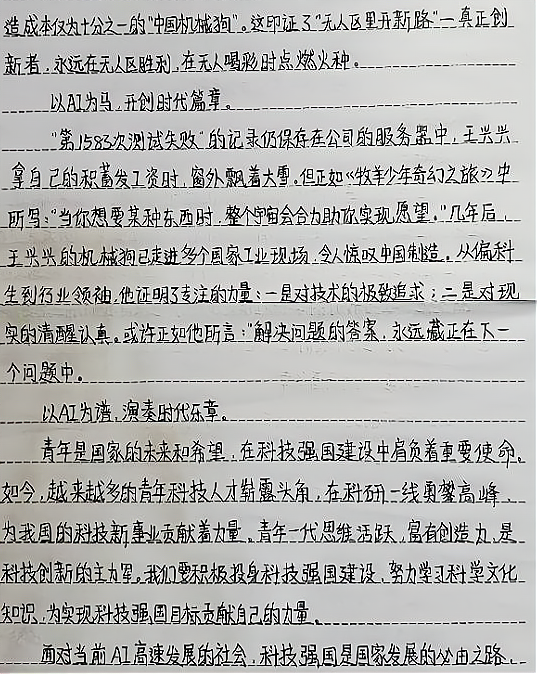 造成本仅为十分之一的"中国机械狗"。这印证了"无人区里开新路"一真正创
新者,永远在无人区胜利,在无人喝彩时点燃火种。
以AI为马,开创时代篇章。
"第1583次测试失败"的记录仍保存在公司的服务器中,王兴兴
拿自己的积蓄发工资时,窗外飘着大雪。但正如《牧羊少年奇幻之旅》中
所写:"当你想要某种东西时,整个宇宙会合力助你实现愿望。"几年后,
王兴兴的机械狗已走进多个国家工业现场,令人惊叹中国制造。从偏科
生到行业领袖,他证明了专注的力量:一是对技术的极致追求;二是对现
实的清醒认真。或许正如他所言:"解决问题的答案,永远藏正在下一
个问题中。
以AI为谱,演奏时代乐章。
青年是国家的未来和希望,在科技强国建设中肩负着重要使命。
如今,越来越多的青年科技人才崭露头角,在科研一线勇攀高峰,
为我国的科技新事业贡献着力量。青年一代思维活跃,富有创造力,是
科技创新的主力军。我们要积极投身科技强国建设,努力学习科学文化
知识,为实现科技强国目标贡献自己的力量。
面对当前AI高速发展的社会,科技强国是国家发展的必由之路,